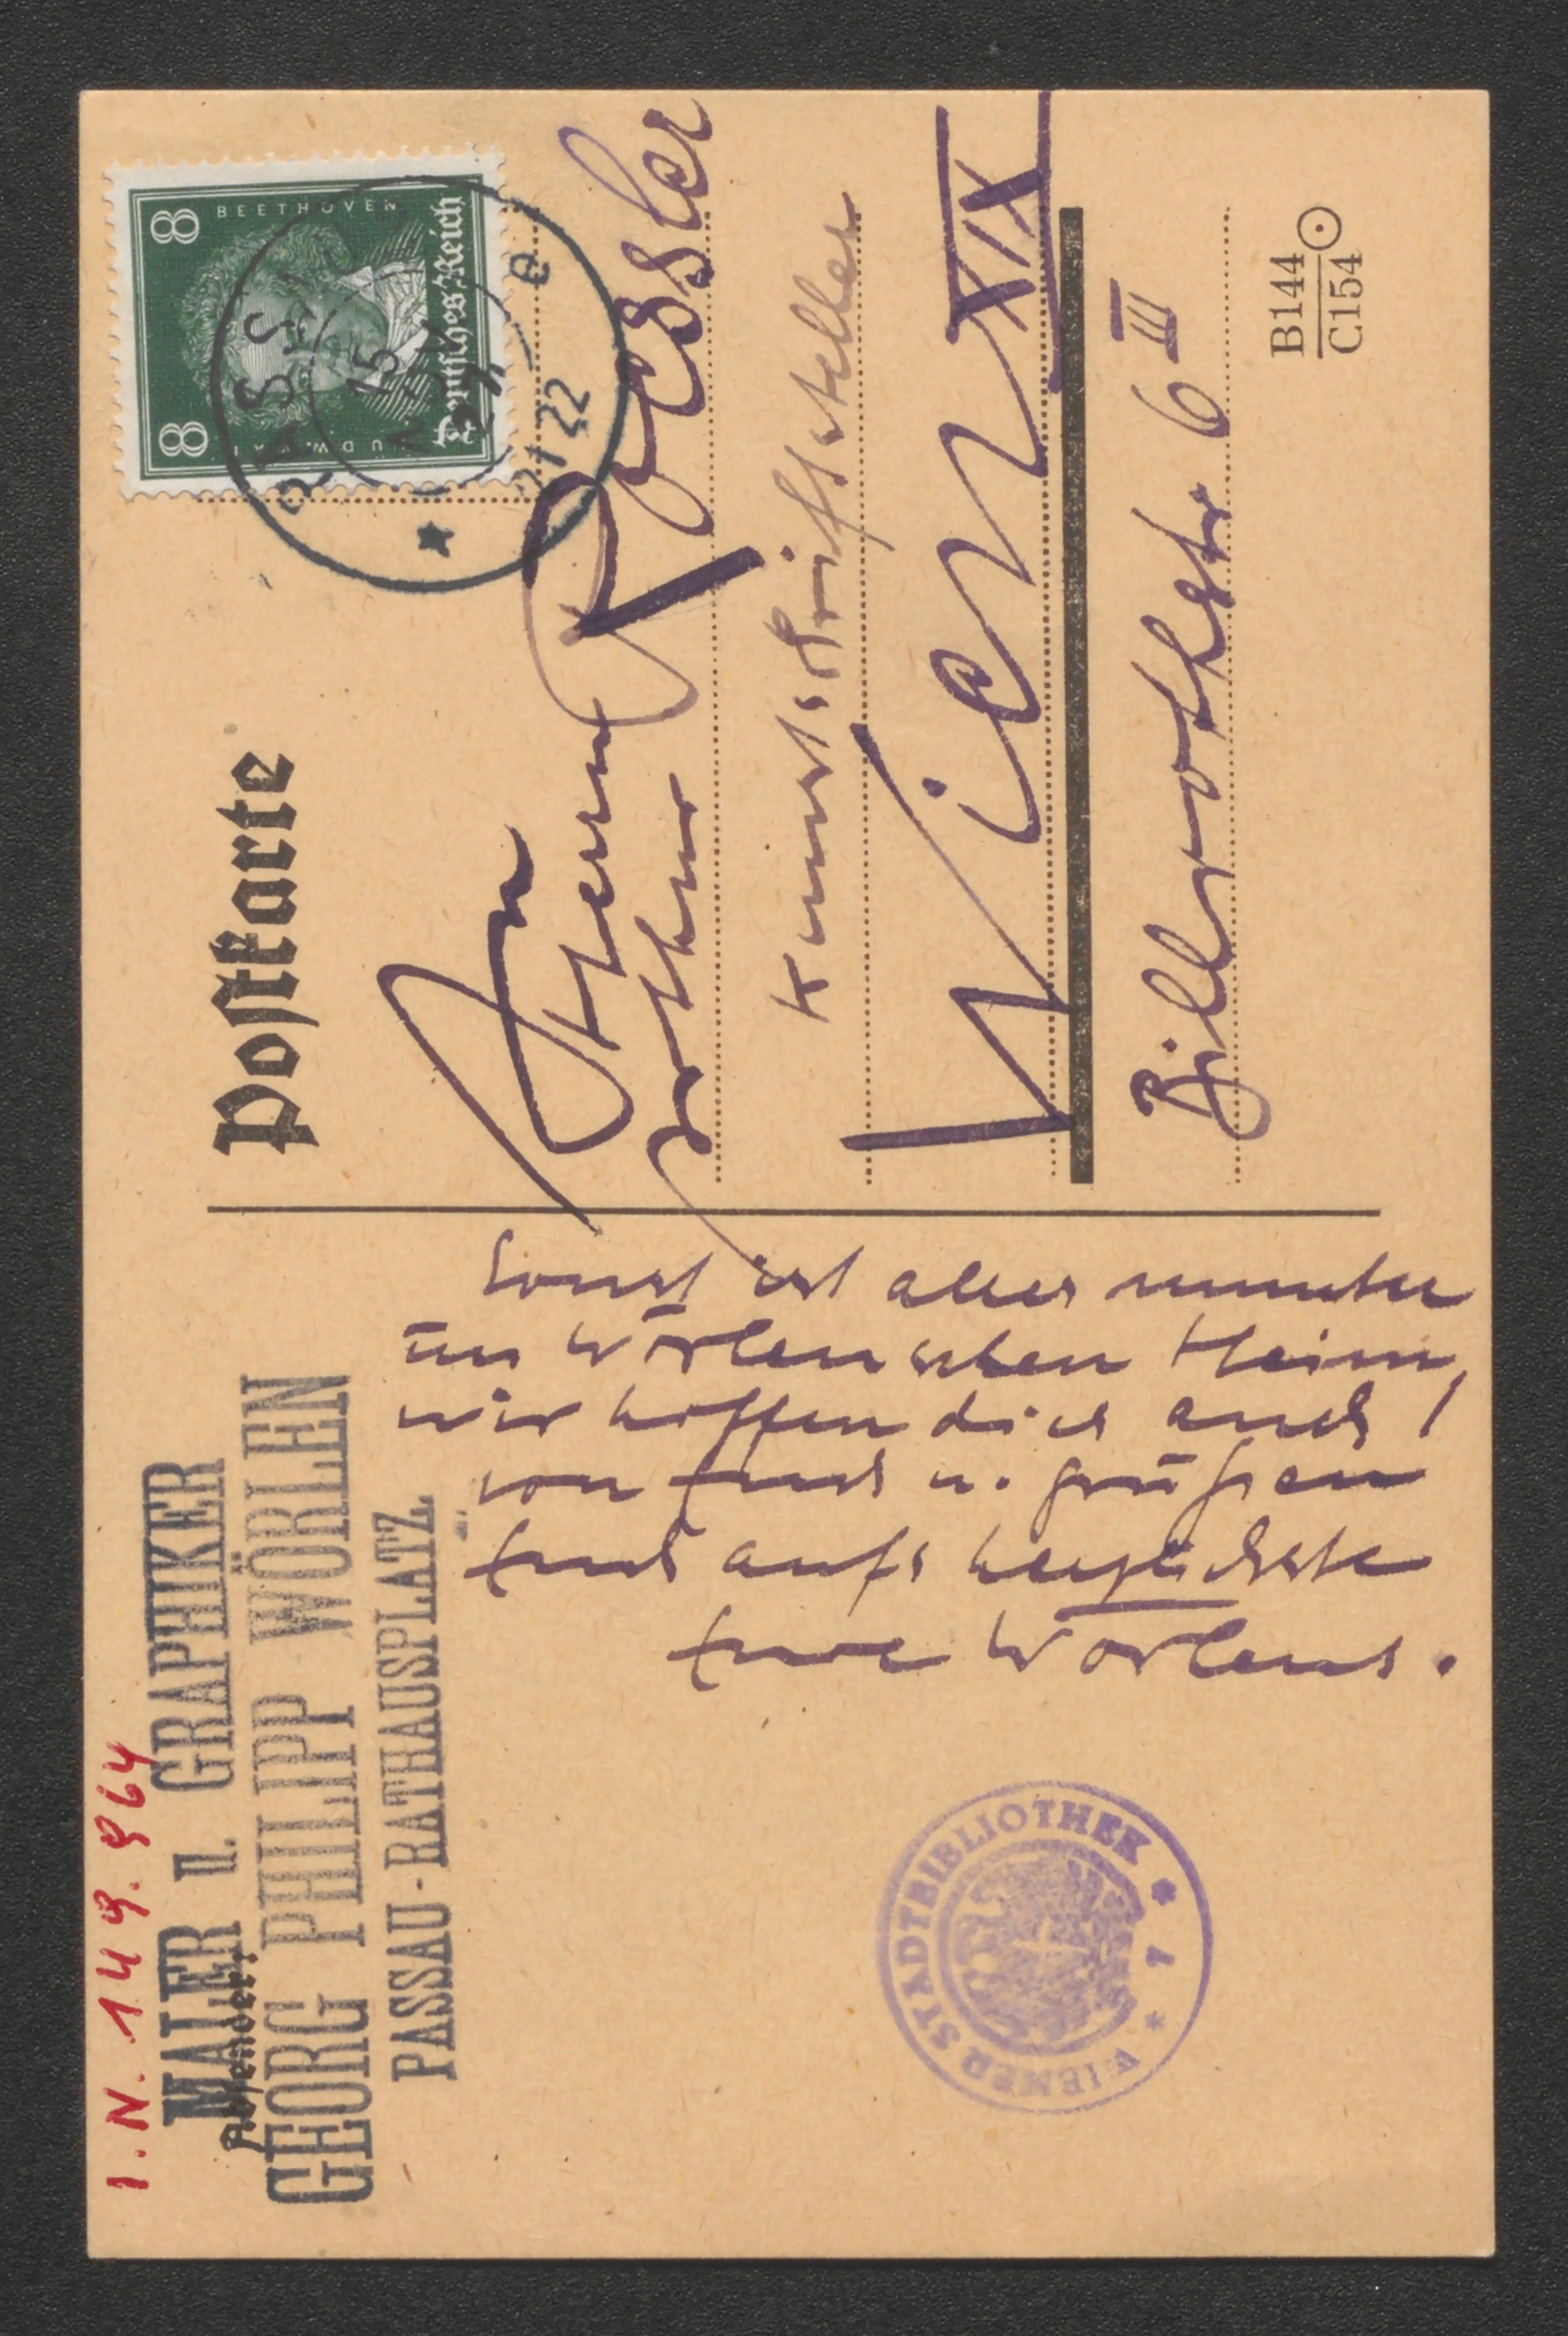 I.N. 149.964
MALER u. GRAPHIKER
Absender:
GEORG PHILIPP WÖRLEN
PASSAU-RATHAUSPLATZ
Sonst ist alles munter
im Wörlenschen Heim,
wir hoffen dies auch
von Euch u. grüßen
Euch aufs herzlichste
Eure Wörlens.
WIENER STADTBIBLIOTHEK
* 1 *
Postkarte
8 BEETHOVEN 8
Deutsches Reich
PASSAU
15
21-22
An
Herrn
Arthur Roessler
Kunstschriftsteller
WIEN XIX
Billrothstr 6 III
B144
C154